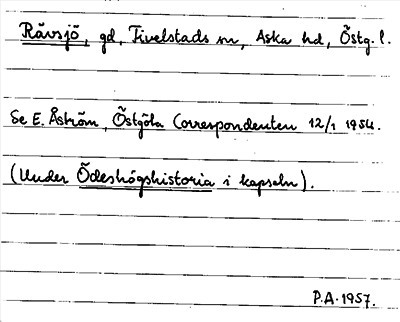 Rävsjö, gd, Tivelstads sn, Aska hd, Östg. l.
Se E. Åström, Östgöta Correspondenten 12/1 1954.
(Under Ödeshögshistoria i kapseln).
P.A. 1957.